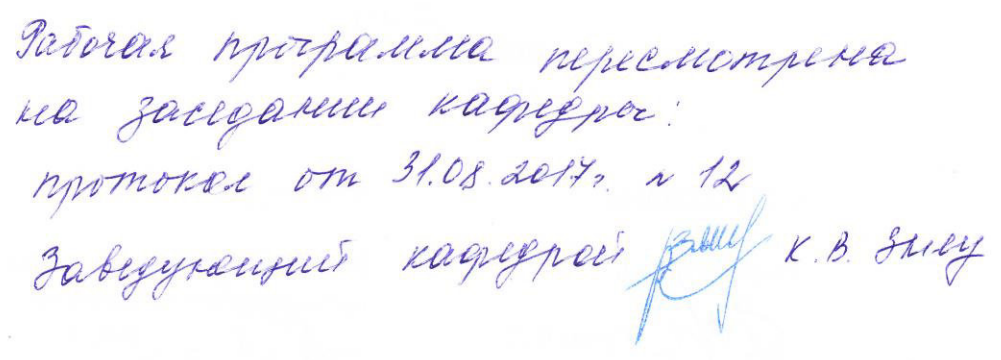 Рабочая программа пересмотрена
на заседании кафедры:
протокол от 31.08.2017г. № 12
Заведующий кафедрой К. В. Змеу